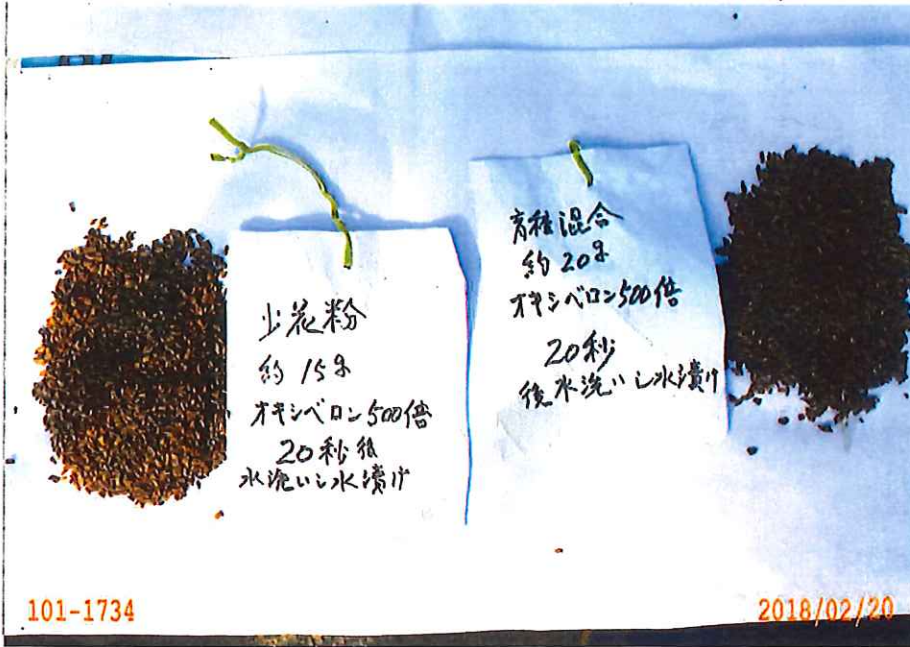 少花粉
約15g
オキシベロン500倍
20秒後
水洗いし水漬け
育種混合
約20g
オキシベロン500倍
20秒
後水洗いし水漬け
101-1734
2018/02/20